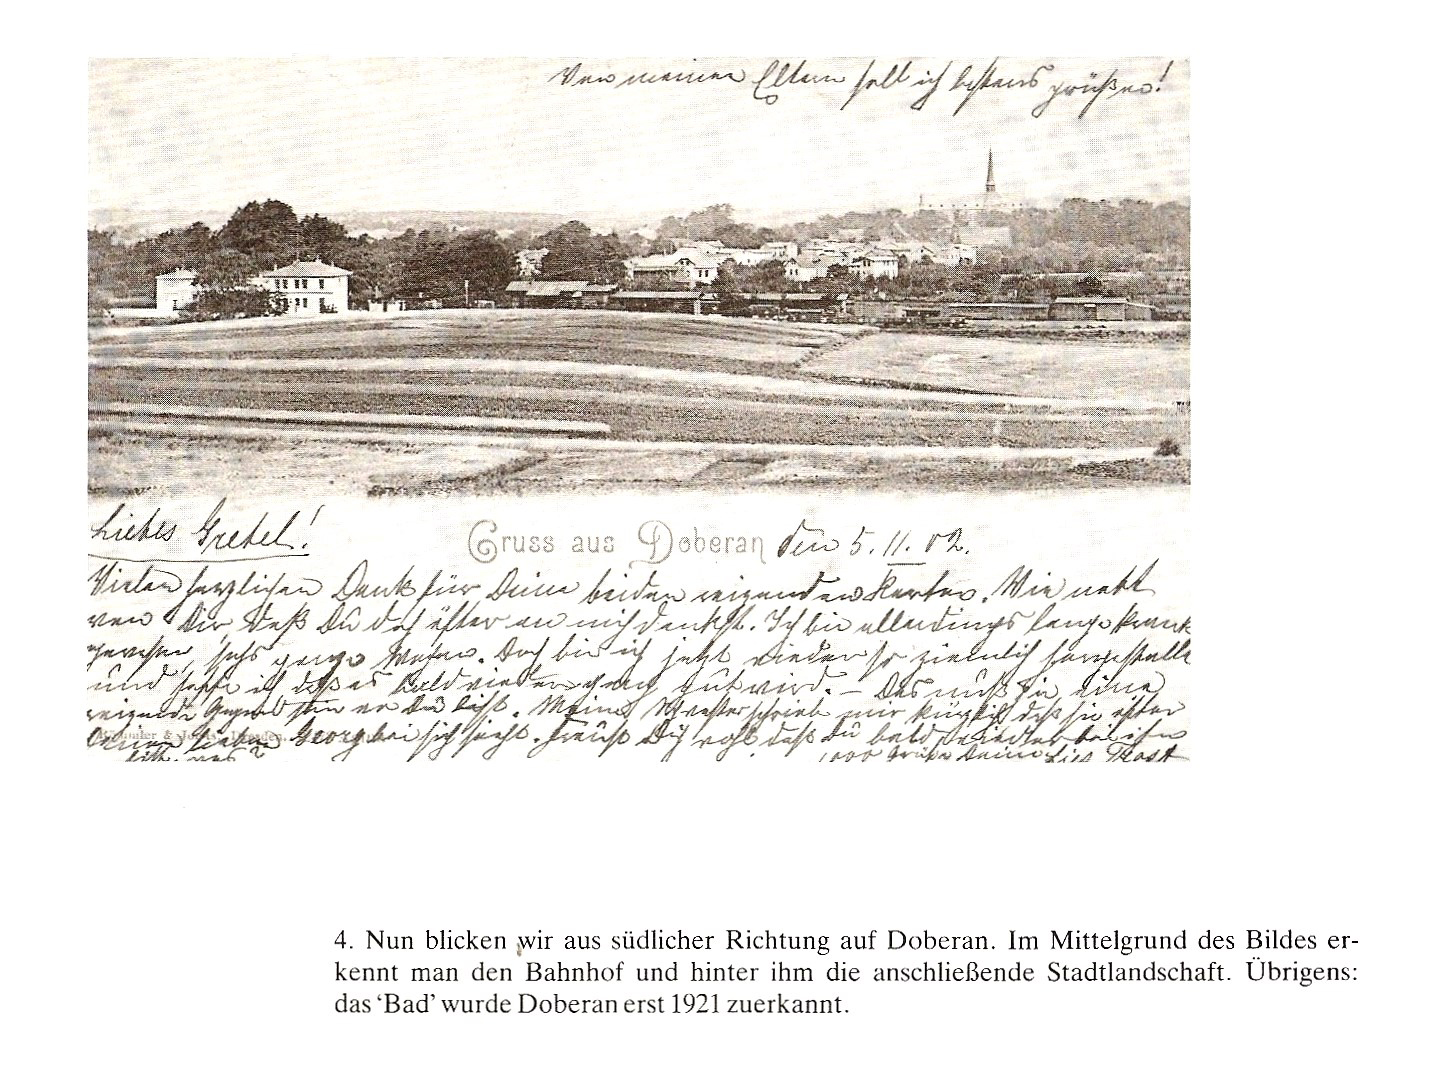 Von meinen Eltern soll ich bestens grüßen!
Liebes Gretel!
Gruss aus Doberan den 5. 11. 02.
Vielen herzlichen Dank für Deine beiden reizenden Karten. Wie nett
von Dir daß Du doch öfter an mich denkst. Ich bin allerdings lange krank
gewesen, sechs ganze Wochen. Doch bin ich jetzt wieder so ziemlich hergestellt
und hoffe ich daß es bald wieder ganz gut wird. – Das muß ja eine
reizende Gegend sein wo Du bist. Meine Schwester schrieb mir kürzlich daß sie öfter
Deinen lieben Georg bei sich sieht. Freust Dich wohl daß Du bald wieder bei ihm
1000 Grüße Deine
4. Nun blicken wir aus südlicher Richtung auf Doberan. Im Mittelgrund des Bildes er-
kennt man den Bahnhof und hinter ihm die anschließende Stadtlandschaft. Übrigens:
das ‘Bad’ wurde Doberan erst 1921 zuerkannt.